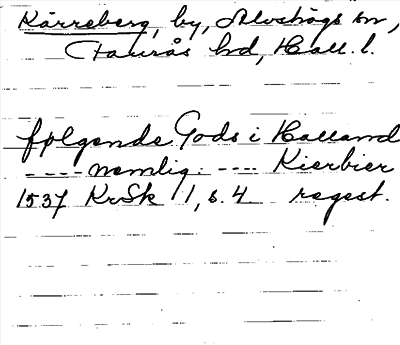 Kärreberg, by, Alvshögs sn,
Faurås hd, Hall. l.
følgende Gods i Halland
---- nemlig: ---- Kierbier
1537 KrSk 1, s. 4 regest.